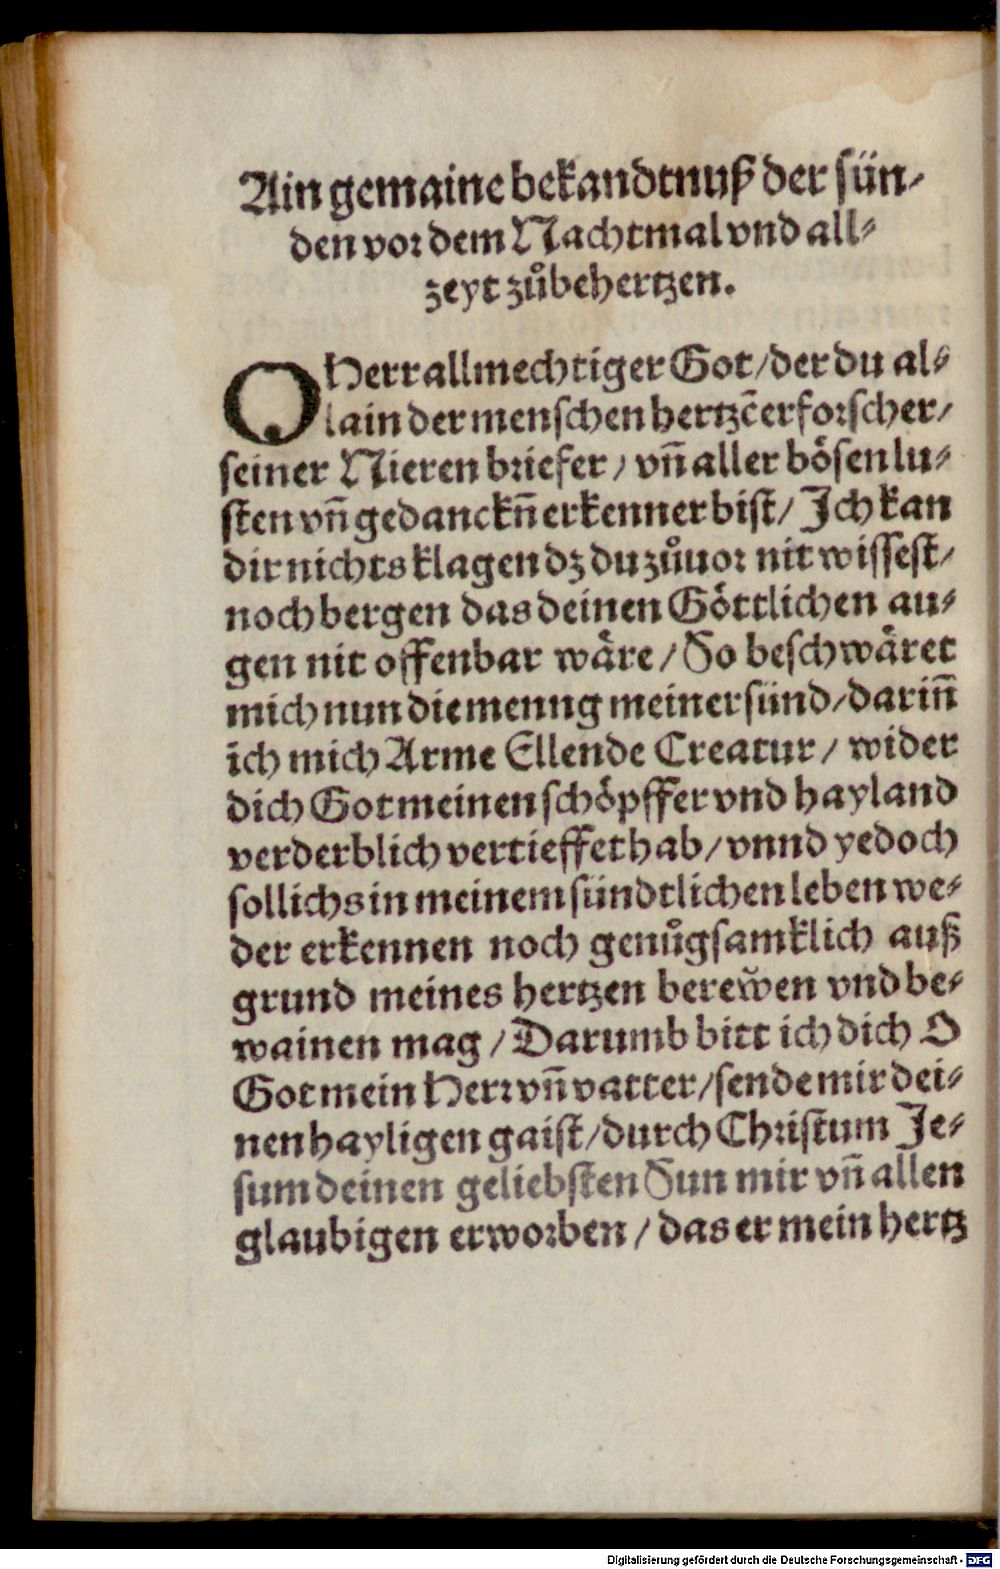 Ain gemaine bekandtnuß der sün⸗
den vor dem Nachtmal vnd all⸗
zeyt zůbehertzen.
O Herr allmechtiger Got/ der du al⸗
lain der menschen hertzē erforscher/
seiner Nieren briefer/ vñ aller bösen lu⸗
sten vñ gedanckñ erkenner bist/ Jch kan
dir nichts klagen dz du zůuor nit wissest/
noch bergen das deinen Göttlichen au⸗
gen nit offenbar wäre/ So beschwäret
mich nun die menng meiner sünd/ dariñ
ich mich Arme Ellende Creatur/ wider
dich Got meinen schöpffer vnd hayland
verderblich vertieffet hab/ vnnd yedoch
sollichs in meinem sündtlichen leben we⸗
der erkennen noch genůgsamklich auß
grund meines hertzen berew̃en vnd be⸗
wainen mag/ Darumb bitt ich dich O
Got mein Herr vñ vatter/ sende mir dei⸗
nen hayligen gaist/ durch Christum Je⸗
sum deinen geliebsten Sun mir vñ allen
glaubigen erworben/ das er mein hertz
Digitalisierung gefördert durch die Deutsche Forschungsgemeinschaft - DFG